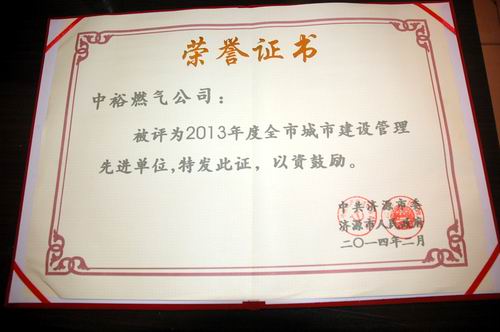 荣誉证书
中裕燃气公司：
被评为2013年度全市城市建设管理
先进单位,特发此证，以资鼓励。
中共济源市委
济源市人民政府
二〇一四年二月